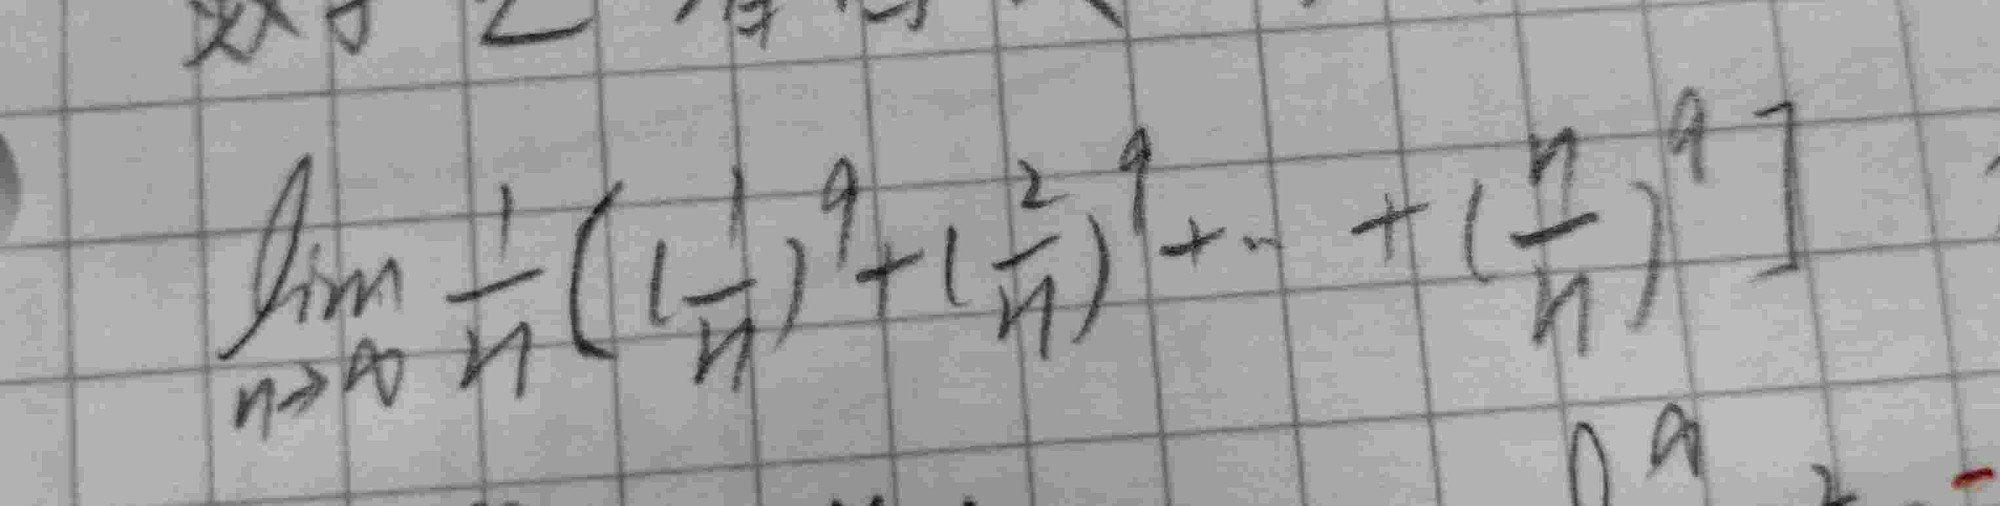 lim n→∞ 1/n ( (1/n)^9 + (2/n)^9 + ... + (n/n)^9 ]